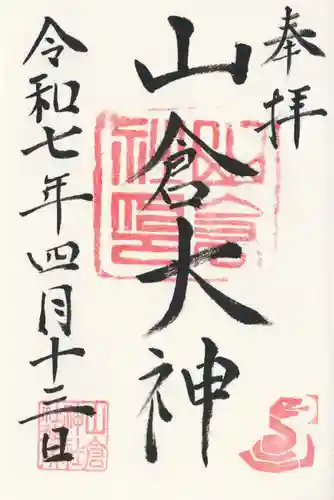 奉拝
山倉大神
令和七年四月十三日
山倉神社印